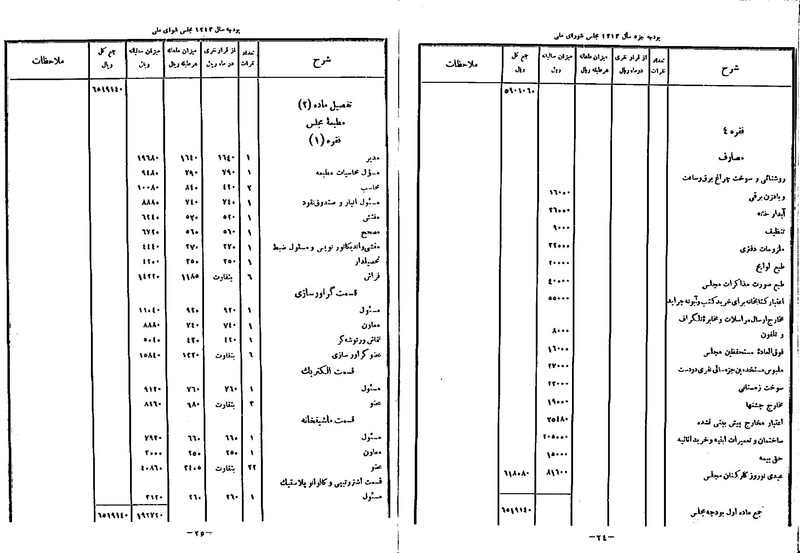 بودجه جزء سال ۱۳۱۳ مجلس شورای ملی
شرح
تعداد نفرات
از قرار نفری در ماه ریال
میزان ماهانه هر طبقه ریال
میزان سالیانه ریال
جمع کل ریال
ملاحظات
۵۹۰۱۰۶۰
فقره ۴
مصارف
روشنائی و سوخت چراغ برق و ساعت
و بادزن برقی ۱۶۰۰۰
آبدار خانه ۲۶۰۰۰
تنظیف ۹۰۰۰
ملزومات دفتری
طبع لوایح ۲۰۰۰۰
طبع صورت مذاکرات مجلس ۴۰۰۰۰
اعتبار کتابخانه برای خرید کتب و آبونه جراید ۵۵۰۰۰
مخارج ارسال مراسلات و مخابرهٔ تلگراف
و تلفون ۸۰۰۰
فوق‌العادهٔ مستحفظین مجلس ۱۶۰۰۰
ملبوس مستخدمین جزء سالی نفری دو دست ۲۷۰۰۰
سوخت زمستانی
مخارج جشنها ۱۹۰۰۰
اعتبار مخارج پیش بینی نشده ۲۵۴۸۰
ساختمان و تعمیرات ابنیه و خرید اثاثیه ۲۰۵۰۰۰
حق بیمه ۱۵۰۰۰
عیدی نوروز کارکنان مجلس ۸۱۶۰۰ ۶۱۸۰۸۰
جمع ماده اول بودجه مجلس ۶۵۱۹۱۴۰
—۲۴—
بودجه سال ۱۳۱۳ مجلس شورای ملی
شرح
تعداد نفرات
از قرار نفری در ماه ریال
میزان ماهانه هر طبقه ریال
میزان سالیانه ریال
جمع کل ریال
ملاحظات
۶۵۱۹۱۴۰
تفصیل ماده (۲)
مطبعهٔ مجلس
فقره (۱)
مدیر ۱ ۱۶۴۰ ۱۶۴۰ ۱۹۶۸۰
مسئول محاسبات مطبعه ۱ ۷۹۰ ۷۹۰ ۹۴۸۰
محاسب ۲ ۴۲۰ ۸۴۰ ۱۰۰۸۰
مسئول انبار و صندوق نقود ۱ ۷۴۰ ۷۴۰ ۸۸۸۰
مفتش ۱ ۵۲۰ ۵۲۰ ۶۲۴۰
مصحح ۱ ۵۶۰ ۵۶۰ ۶۷۲۰
منشی و اندیکاتور نویس و مسئول ضبط ۱ ۳۷۰ ۳۷۰ ۴۴۴۰
تحصیلدار ۱ ۳۵۰ ۳۵۰ ۴۲۰۰
فراش ۶ بتفاوت ۱۱۸۵ ۱۴۲۲۰
قسمت گراور سازی
مسئول ۱ ۹۲۰ ۹۲۰ ۱۱۰۴۰
معاون ۱ ۷۴۰ ۷۴۰ ۸۸۸۰
نقاش و رتوشه‌گر ۱ ۴۲۰ ۴۲۰ ۵۰۴۰
عضو گراور سازی ۶ بتفاوت ۱۳۲۰ ۱۵۸۴۰
قسمت الکتریک
مسئول ۱ ۷۶۰ ۷۶۰ ۹۱۲۰
عضو ۳ بتفاوت ۶۸۰ ۸۱۶۰
قسمت ماشینخانه
مسئول ۱ ۶۶۰ ۶۶۰ ۷۹۲۰
معاون ۱ ۲۵۰ ۲۵۰ ۳۰۰۰
عضو ۲۲ بتفاوت ۳۴۰۵ ۴۰۸۶۰
قسمت اشتروتیپی و گالوانو پلاستیک
مسئول ۱ ۲۶۰ ۲۶۰ ۳۱۲۰
۱۹۲۷۲۰ ۶۵۱۹۱۴۰
—۲۵—